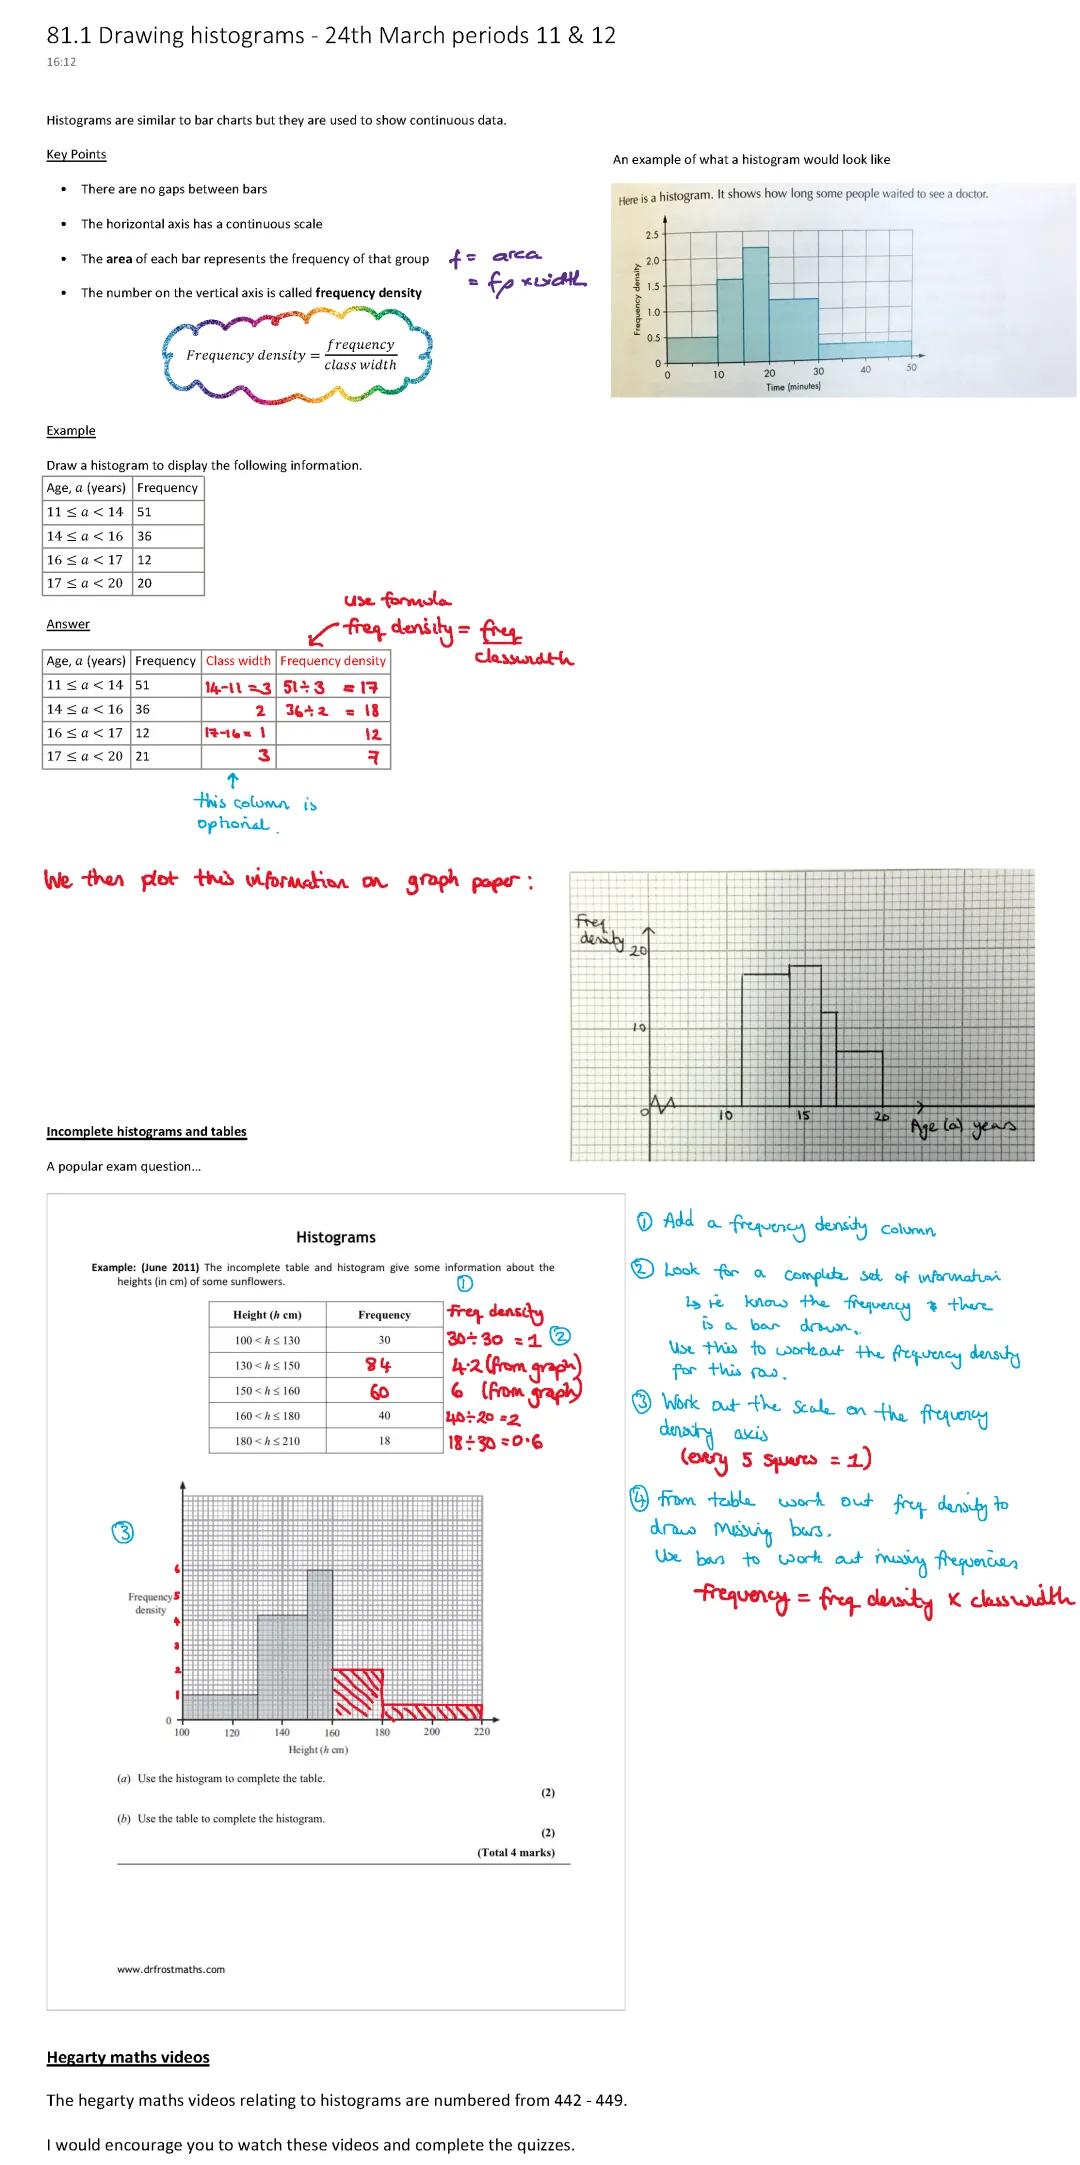 81.1 Drawing histograms - 24th March periods 11 & 12
16:12
Histograms are similar to bar charts but they are used to show continuous data.
Key Points
• There are no gaps between bars
• The horizontal axis has a continuous scale
• The area of each bar represents the frequency of that group
• The number on the vertical axis is called frequency density
f = area
= fD × width
Frequency density = frequency / class width
An example of what a histogram would look like
Here is a histogram. It shows how long some people waited to see a doctor.
Frequency density
2.5
2.0
1.5
1.0
0.5
0
0 10 20 30 40 50
Time (minutes)
Example
Draw a histogram to display the following information.
Age, a (years) Frequency
11 ≤ a < 14 51
14 ≤ a < 16 36
16 ≤ a < 17 12
17 ≤ a < 20 20
Answer
use formula
freq density = freq / classwidth
Age, a (years) Frequency Class width Frequency density
11 ≤ a < 14 51 14-11 = 3 51÷3 = 17
14 ≤ a < 16 36 2 36÷2 = 18
16 ≤ a < 17 12 17-16 = 1 12
17 ≤ a < 20 21 3 7
↑
this column is
optional.
We then plot this information on graph paper:
Freq
density
20
10
0 10 15 20
Age (a) years
Incomplete histograms and tables
A popular exam question...
Histograms
Example: (June 2011) The incomplete table and histogram give some information about the
heights (in cm) of some sunflowers.
①
Height (h cm) Frequency freq density
100 < h ≤ 130 30 30÷30 = 1 ②
130 < h ≤ 150 84 4.2 (from graph)
150 < h ≤ 160 60 6 (from graph)
160 < h ≤ 180 40 40÷20 = 2
180 < h ≤ 210 18 18÷30 = 0.6
③
Frequency
density
6
5
4
3
2
1
0
100 120 140 160 180 200 220
Height (h cm)
(a) Use the histogram to complete the table.
(2)
(b) Use the table to complete the histogram.
(2)
(Total 4 marks)
www.drfrostmaths.com
① Add a frequency density column
② Look for a complete set of information
↳ ie know the frequency & there
is a bar drawn.
Use this to workout the frequency density
for this row.
③ Work out the scale on the frequency
density axis
(every 5 squares = 1)
④ From table work out freq density to
draw missing bars.
Use bars to work out missing frequencies
frequency = freq density × classwidth
Hegarty maths videos
The hegarty maths videos relating to histograms are numbered from 442 - 449.
I would encourage you to watch these videos and complete the quizzes.